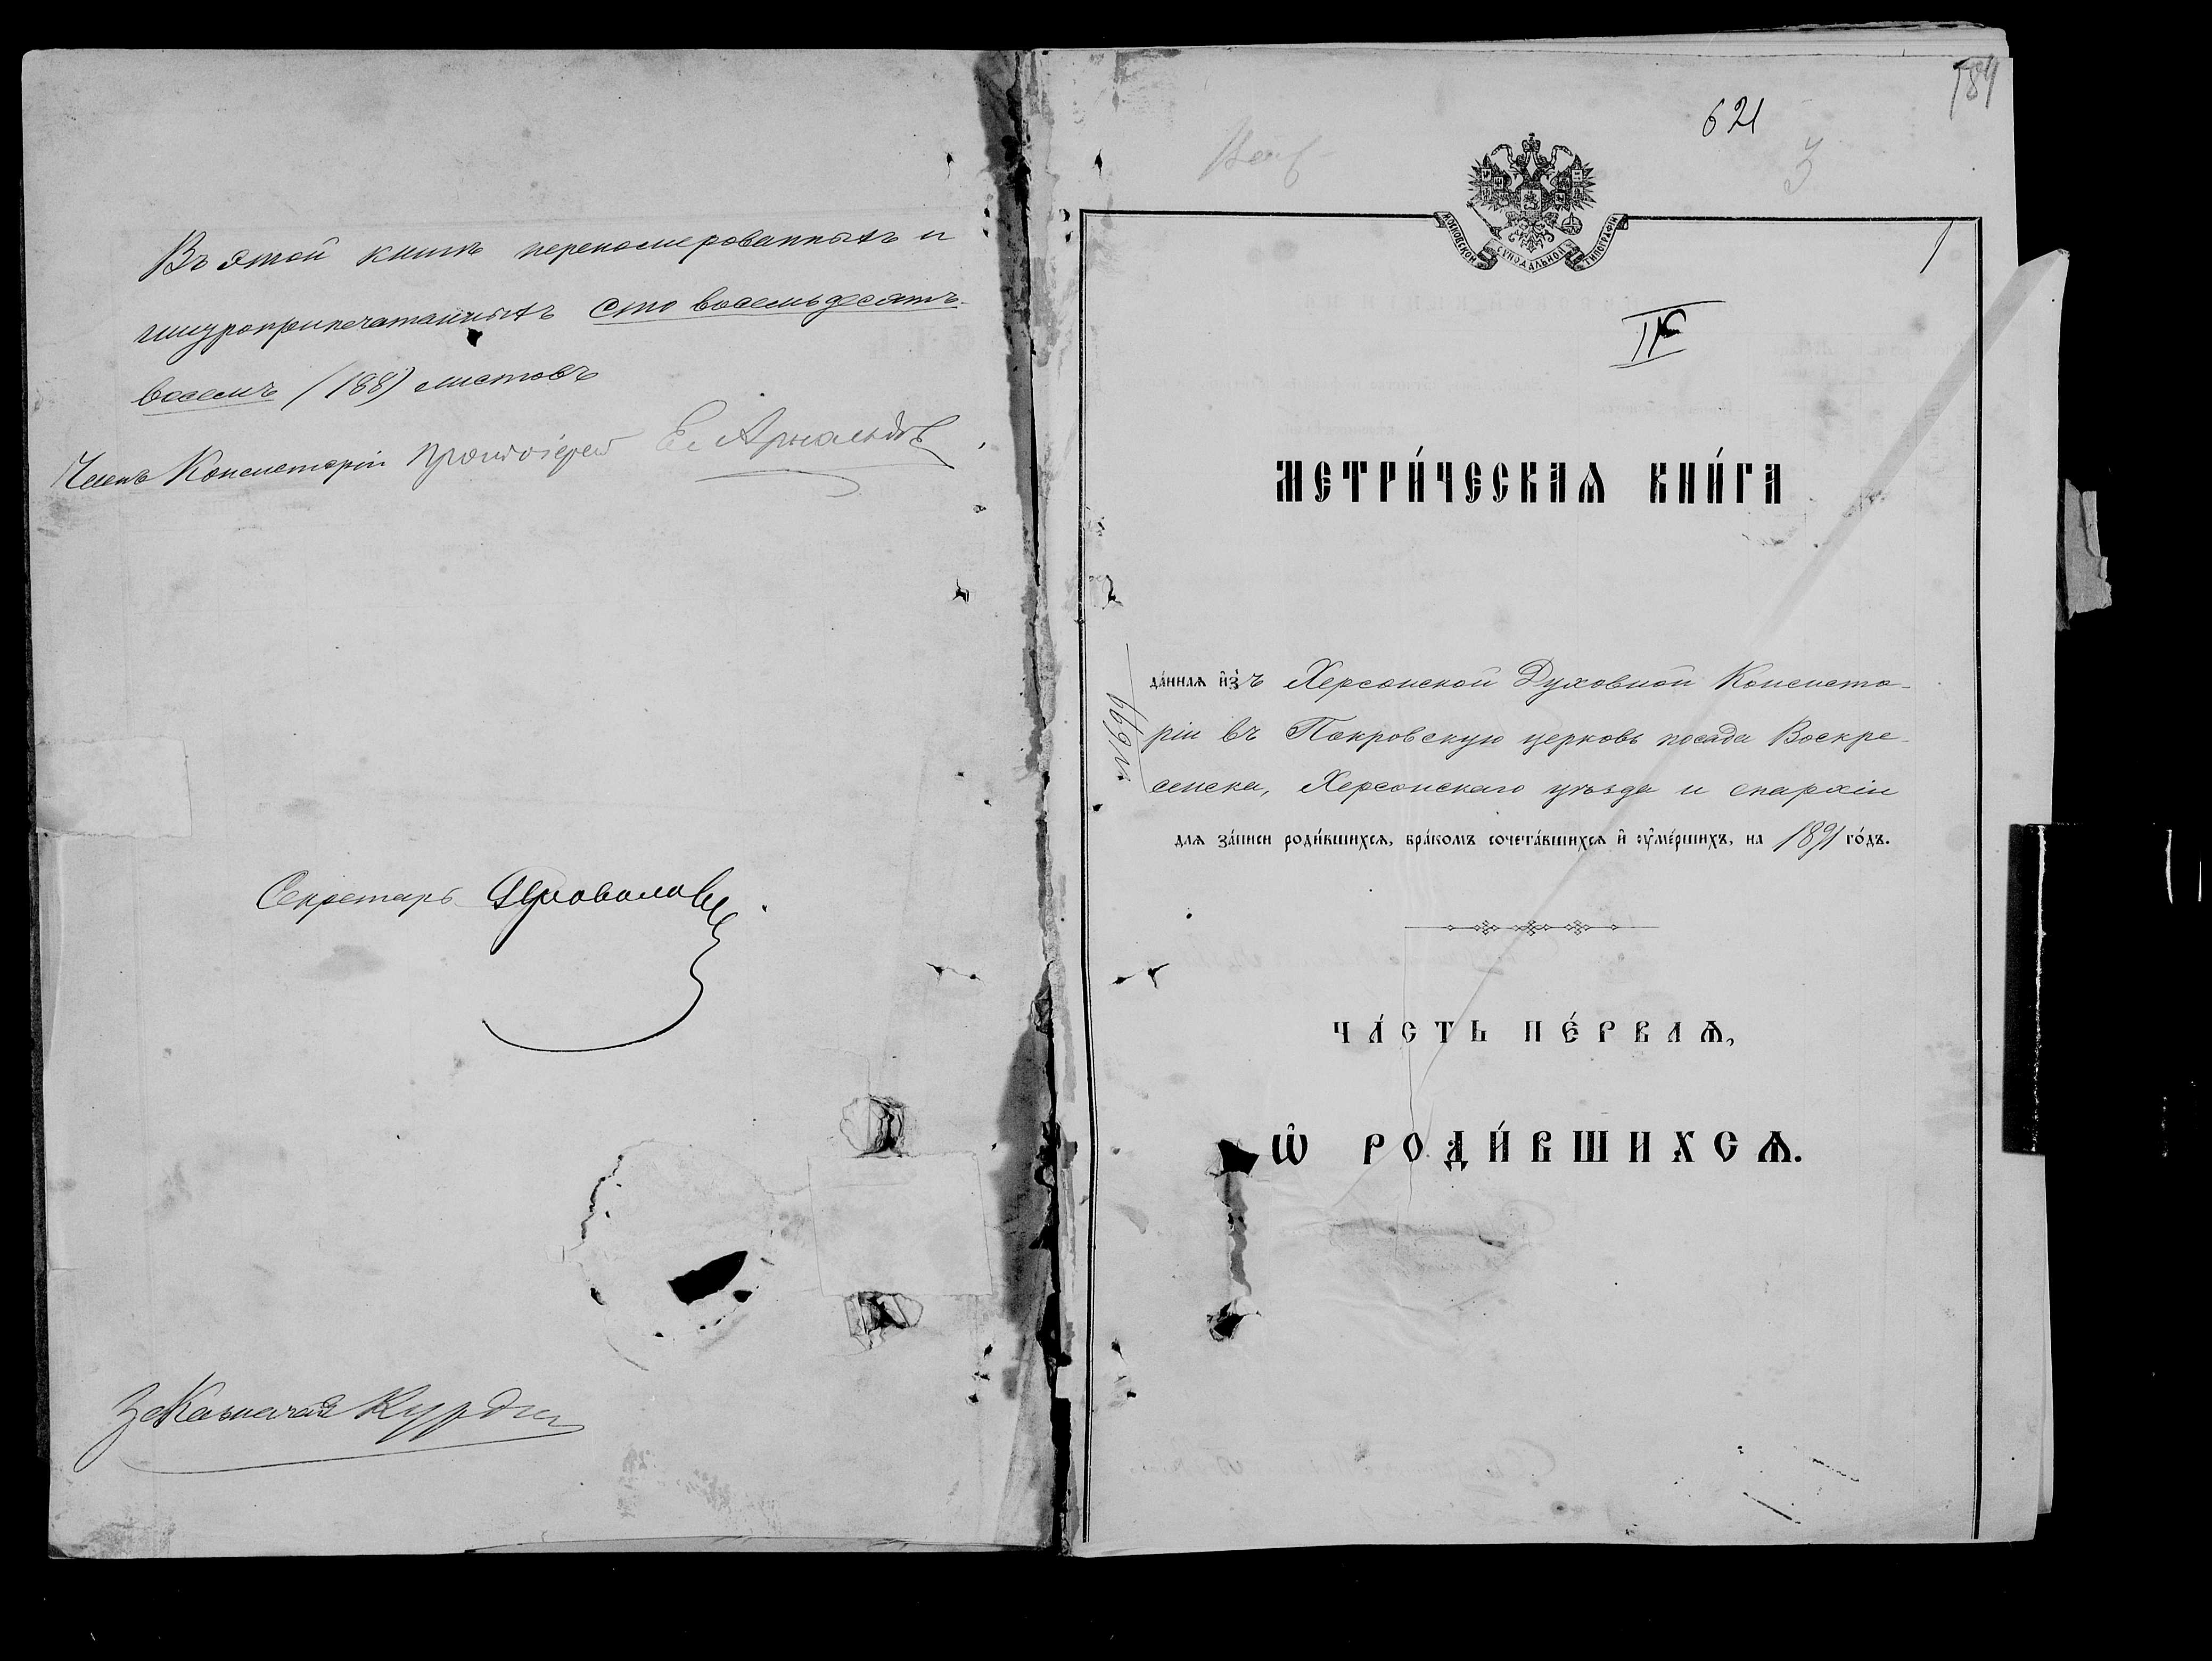 Въ этой книгѣ переномерованныхъ и
шнуроприпечатанныхъ сто восемьдесятъ
восемь (188) листовъ
Членъ Консисторіи Протоіерей Е. Арнольдовъ
Секретарь
За Казначея
621
3
1
МОСКОВСКОЙ СѴНОДАЛЬНОЙ ТИПОГРАФІИ
МЕТРИ́ЧЕСКАѦ КНИ́ГА
да́ннаѧ и҆з̾ъ Херсонской Духовной Консисто-
ріи въ Покровскую церковь посада Воскре-
сенска, Херсонскаго уѣзда и епархіи
для за́писи роди́вшихсѧ, бра́комъ сочета́вшихсѧ и҆ ᲂу҆ме́ршихъ, на 1891 го́дъ.
ЧА́СТЬ ПЕ́РВАѦ,
Ѡ҆ РОДИ́ВШИХСѦ.